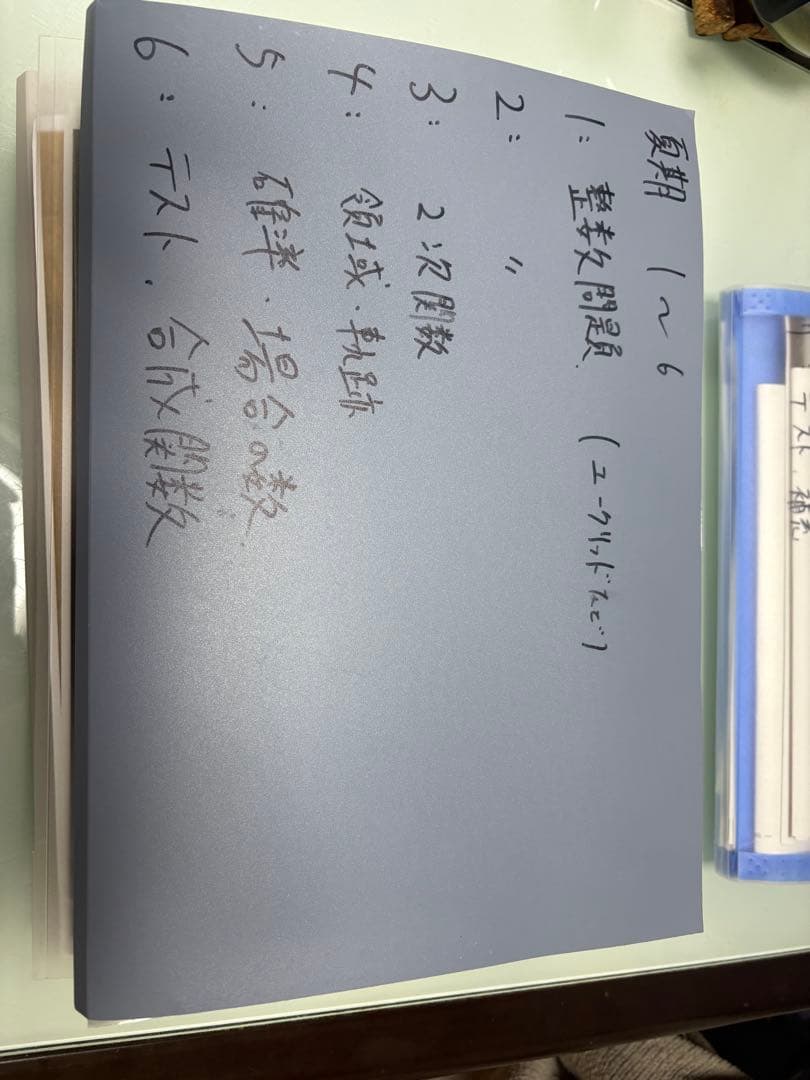 夏期 1〜6
1: 整数問題 (ユークリッドなど)
2: 〃
3: 2次関数
4: 領域・軌跡
5: 確率・場合の数
6: テスト・合成関数
テスト・補充